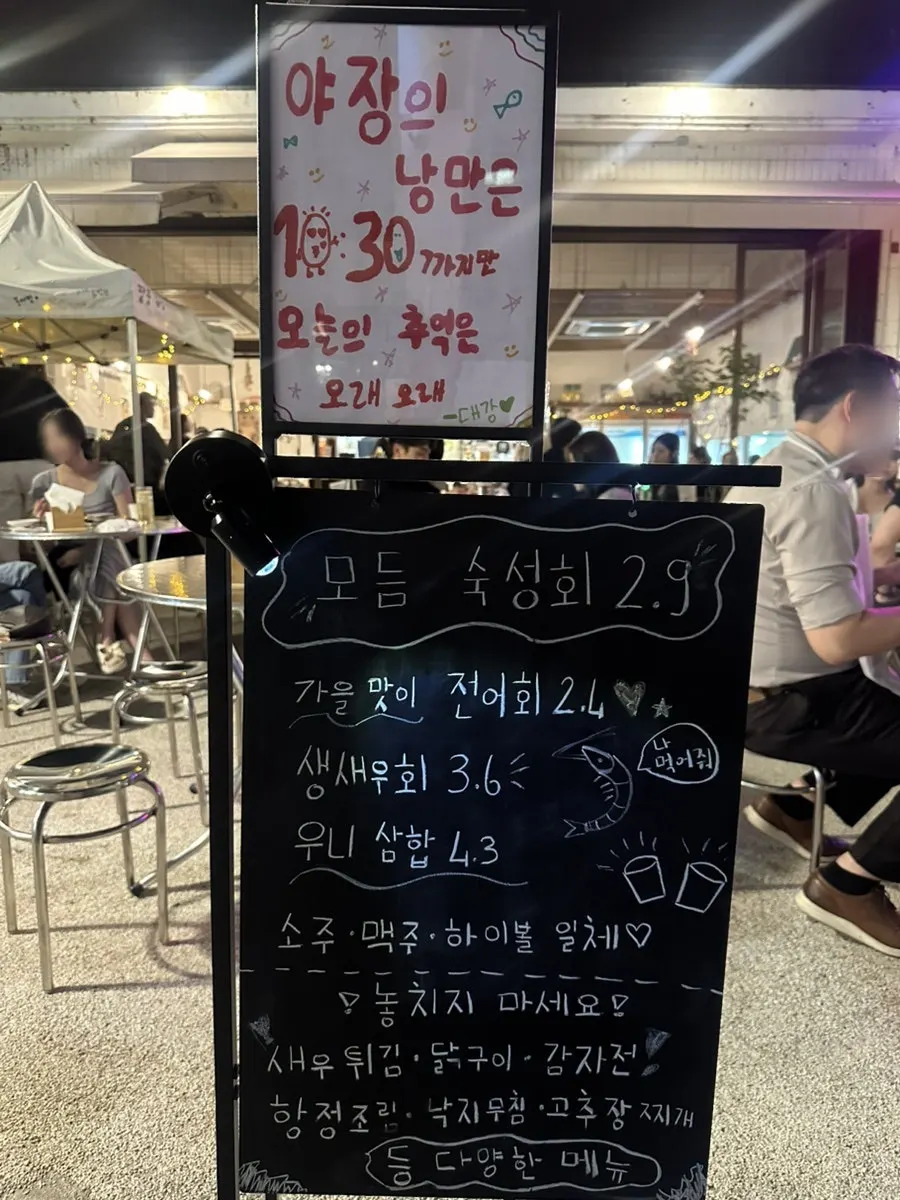 야장의
낭만은
10:30 까지만
오늘의 추억은
오래 오래
-대강♡
모듬 숙성회 2.9
가을 맛이 전어회 2.4
생새우회 3.6
나
먹어줘
우니 삼합 4.3
소주·맥주·하이볼 일체♡
! 놓치지 마세요!
새우튀김·닭구이·감자전
항정조림·낙지무침·고추장찌개
등 다양한 메뉴